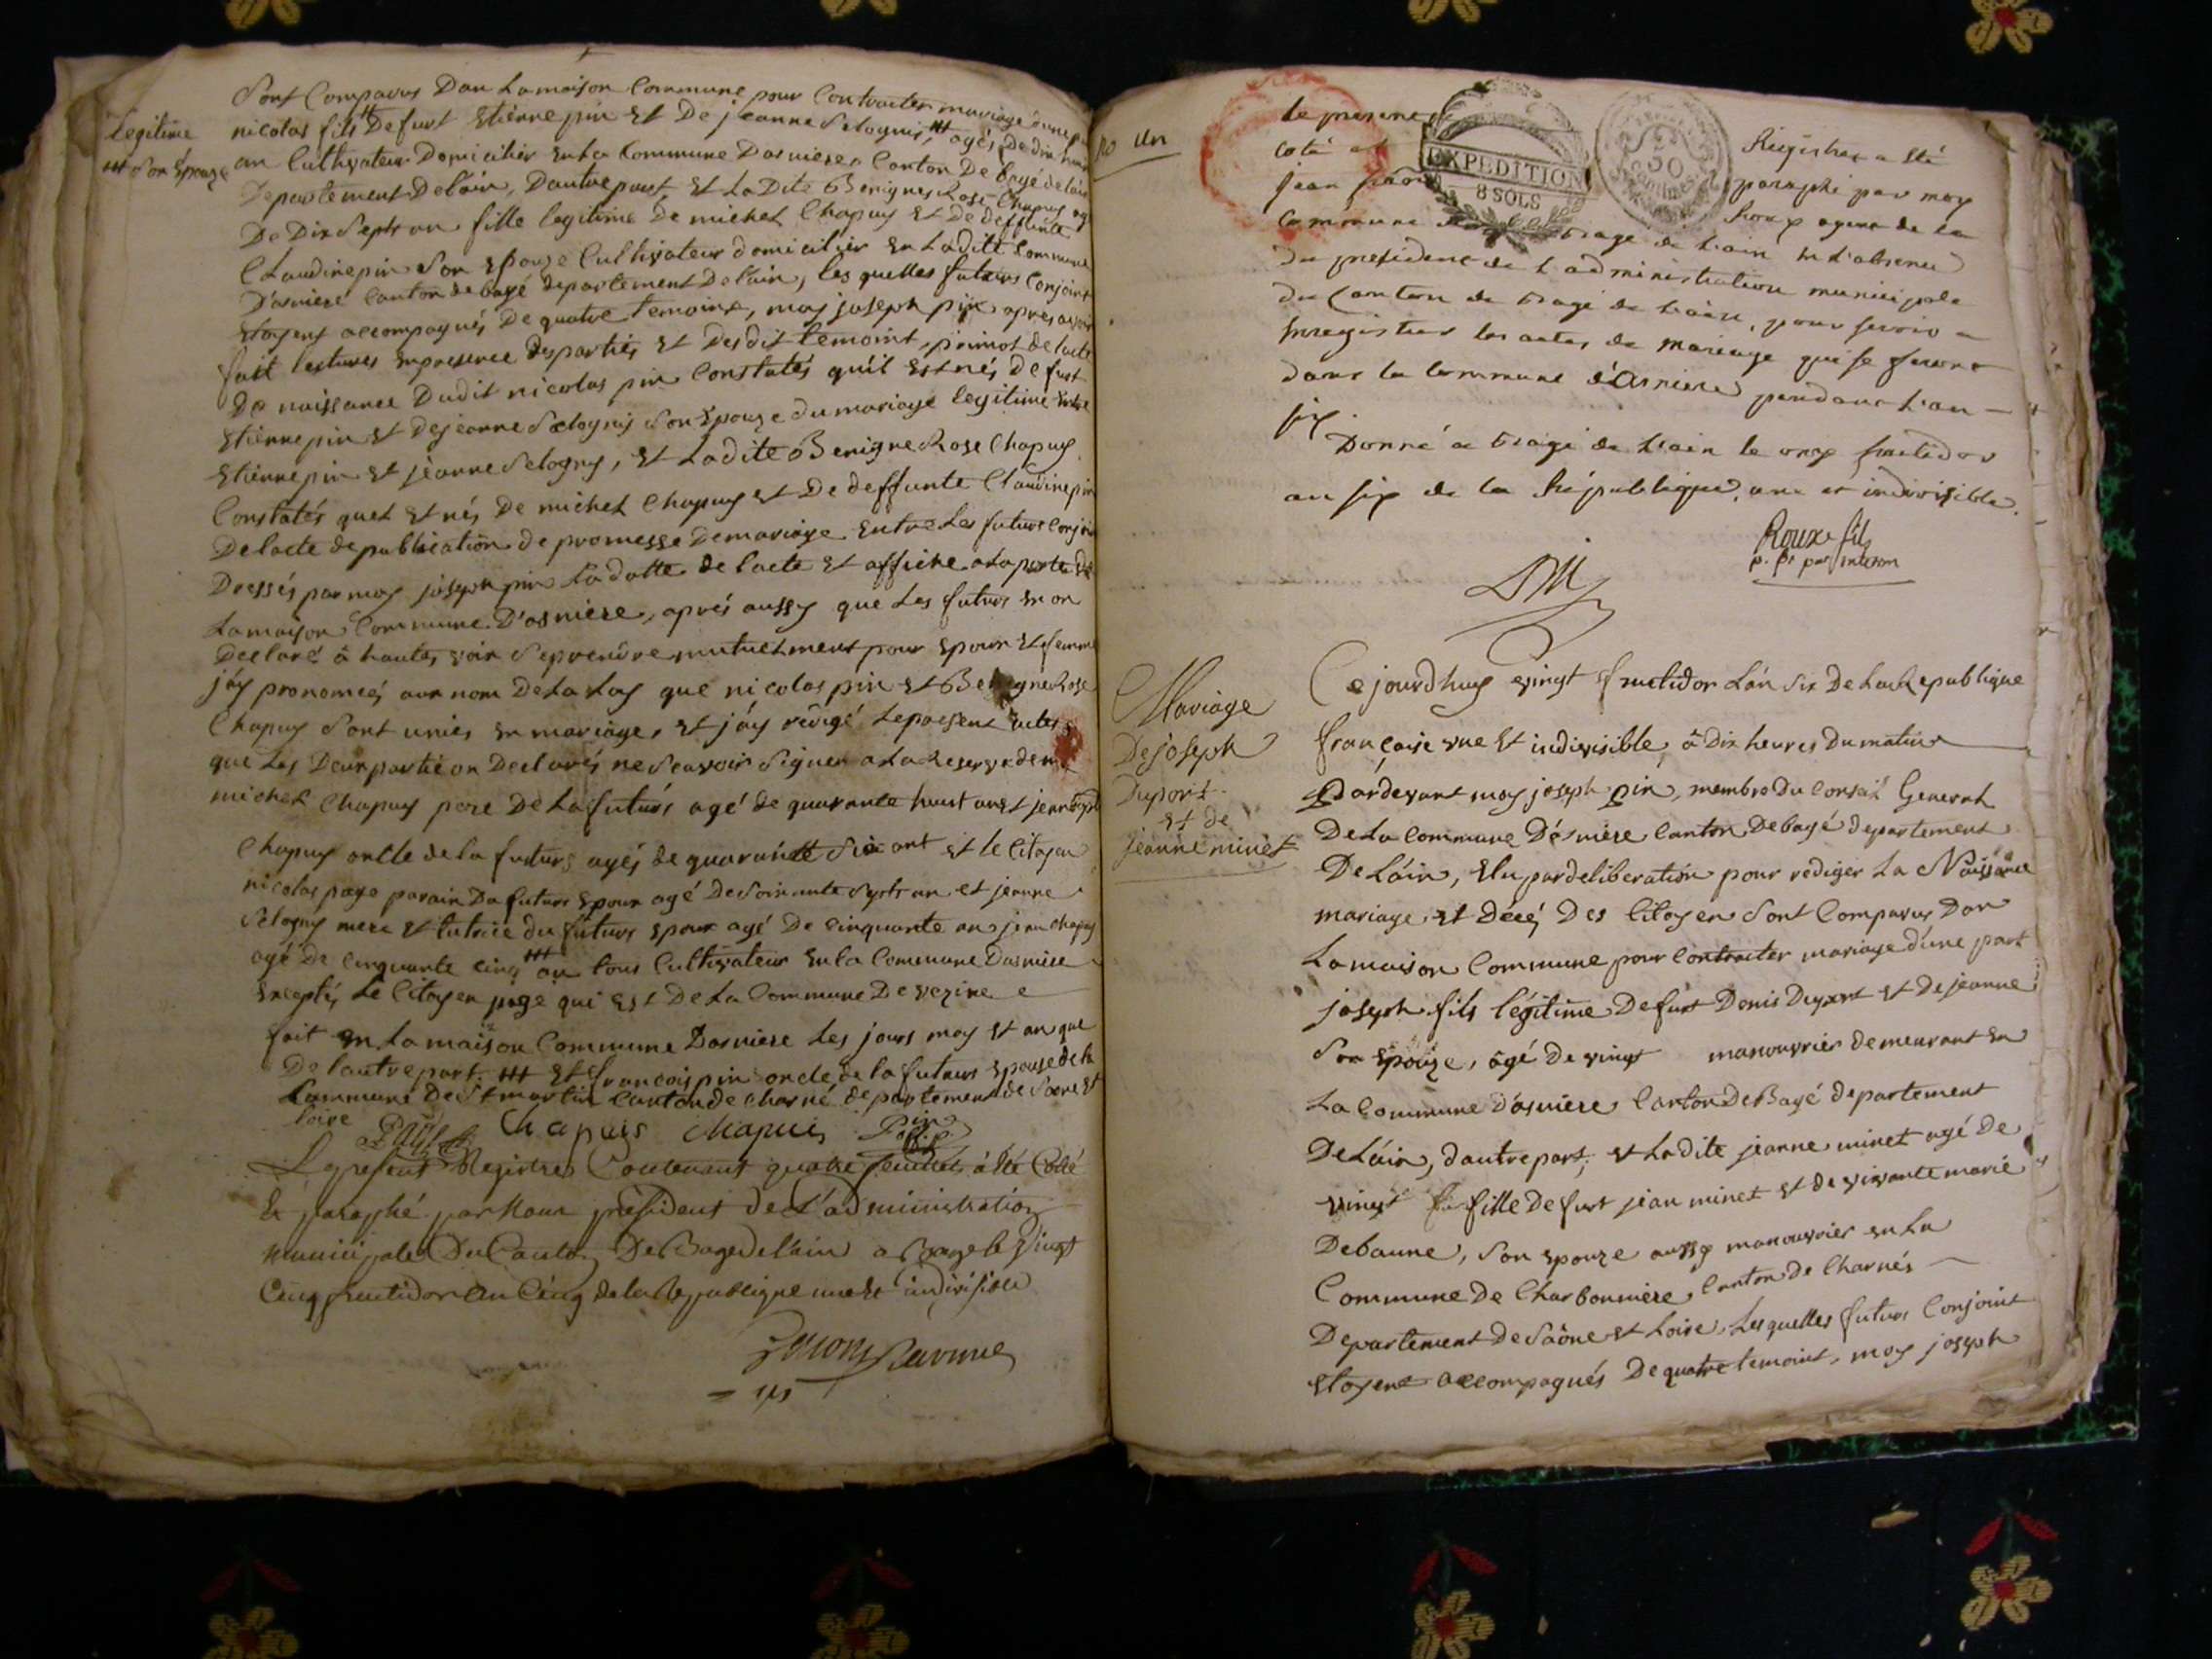 Sont Comparus Dan Lamaison Commune pour Contracter mariage dune
Legitime
nicolas fils ## De fust Etienne pin Et De jeanne Selognis, ### agés De dix huit
### Son Epouze
an Cultivateur Domicilier En La Commune Dasniere Canton De bagé delain
Departement De lain, Dautre part Et La Dite Benigne Rose Chapuy agé
De Dix Sept an fille legitime De michel Chapuy Et De deffunte
Claudine pin Son Epouze Cultivateur domicilier En La dite Commune
D'asniere Canton de bagé departement De lain, les quelles futurs Conjoint
Etoyent accompagnés De quatre temoint, moy joseph pin apres avoir
fait lectures En presence Des parties Et Des dit temoint, primot de lacte
De naissance Dudit nicolas pin Constatés qu'il Est nés De fust
Etienne pin Et De jeanne Selognis Son Epouze du mariage legitime Entre
Etienne pin Et jeanne Selogny, Et La dite Benigne Rose Chapuy
Constatés quel Et nés De michel Chapuy Et De deffunte Claudine pin
De lacte de publication de promesse De mariage Entre Les futurs Conjoint
Dressés par moy joseph pin La datte de lacte Et affiche a La porte de
La maison Commune D'asniere, aprés aussy que Les futurs En on
Declaré à hautes voix Se prendre mutuelment pour Epoux Et femme
j'ay prononcés aux nom De La Loy que nicolas pin Et Benigne Rose
Chapuy Sont unies En mariage, Et j'ay rédigé Le present actes
que Les Deux partie on Declarés ne Scavoir Signer a La Reserve de
michel Chapuy pere De La futurs agé de quarante huit ans Et jean
Chapuy oncle de la futurs agés de quarante Six ant Et le Citoyen
nicolas page parain Du futurs Epoux agé De Soixante Sept an et jeanne
Selogny mere Et tutrice du futurs Epoux agé De Cinquante an jean chapuy
agé De Cinquante Cinq ### an tous Cultivateur En la Commune Dasniere
Exceptés Le Citoyen page qui Est De La Commune De vezine
fait En La maison Commune Dasniere Les jours moy Et an que
De lautre part. ### Et francois pin oncle de la futurs Epouse de la
Commune De St martin Canton de charné departement de Saone Et
loire
Chapuis Chapuis Pin
Le present Registre Contenant quatre feuillets à été Coté
& paraphé par Nous president de L'administration
municipale Du Canton De Bagé delain a Bagé le vingt
Cinq fructidor an Cinq de la Republique une et indivisible
un
le present
Registre a été
coté et
paraphé par moy
EXPEDITION
8 SOLS
50
Centimes
jean
Roux agent de la
Commune de Bagé de Lain En L'absence
du president de L'administration municipale
du Canton de Bagé de Lain, pour servir a
Enregistrer les actes de Mariage qui se feront
dans la Commune d'Asniere pendant L'an
six.
Donné a Bagé de Lain le onze fructidor
an six de la République, une et indivisible.
Roux fils
p. pt par interim
Mariage
De joseph
Duport
Et de
jeanne minet
Cejourdhuy vingt fructidor Lan Six De La Republique
française une Et indivisible, à Dix heures Du matin
Pardevant moy joseph pin, membre Du Conseil General
De La Commune D'ésniere Canton De bagé departement
De Lain, Elu par deliberation pour rediger La Naissance
mariage Et décés Des Citoyen Sont Comparus Dan
La maison Commune pour Contracter mariage d'une part
joseph fils légitime De fust Denis Duport Et De jeanne
Son Epouze, agé De vingt manouvrier demeurant En
La Commune D'asniere Canton De Bagé departement
De Lain, dautre part, Et La dite jeanne minet agé De
vingt fille De fust jean minet Et de vivante marie
Debaune, Son Epouze aussy manouvrier En La
Commune De Charbonniere Canton De Charnés
Departement De Saône Et Loire, Les quelles futurs Conjoint
Etoyent accompagnés De quatre temoint, moy joseph